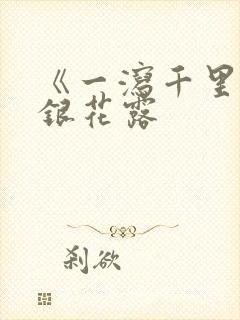 《一瀉千里
銀花露
刹欲